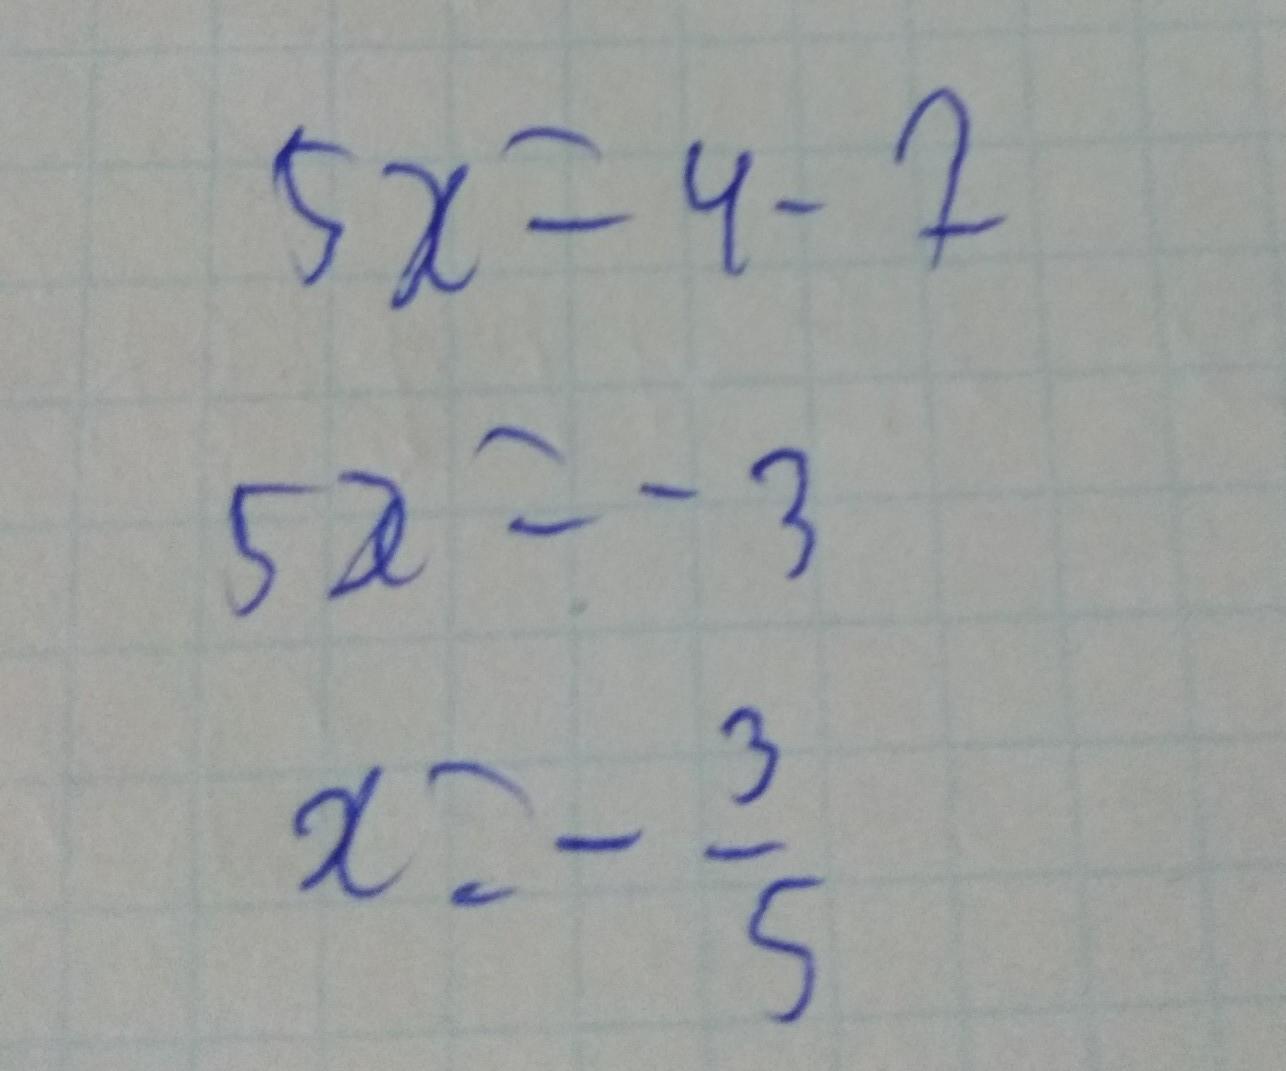 5x = 4 - 7
5x = - 3
x = - 3/5